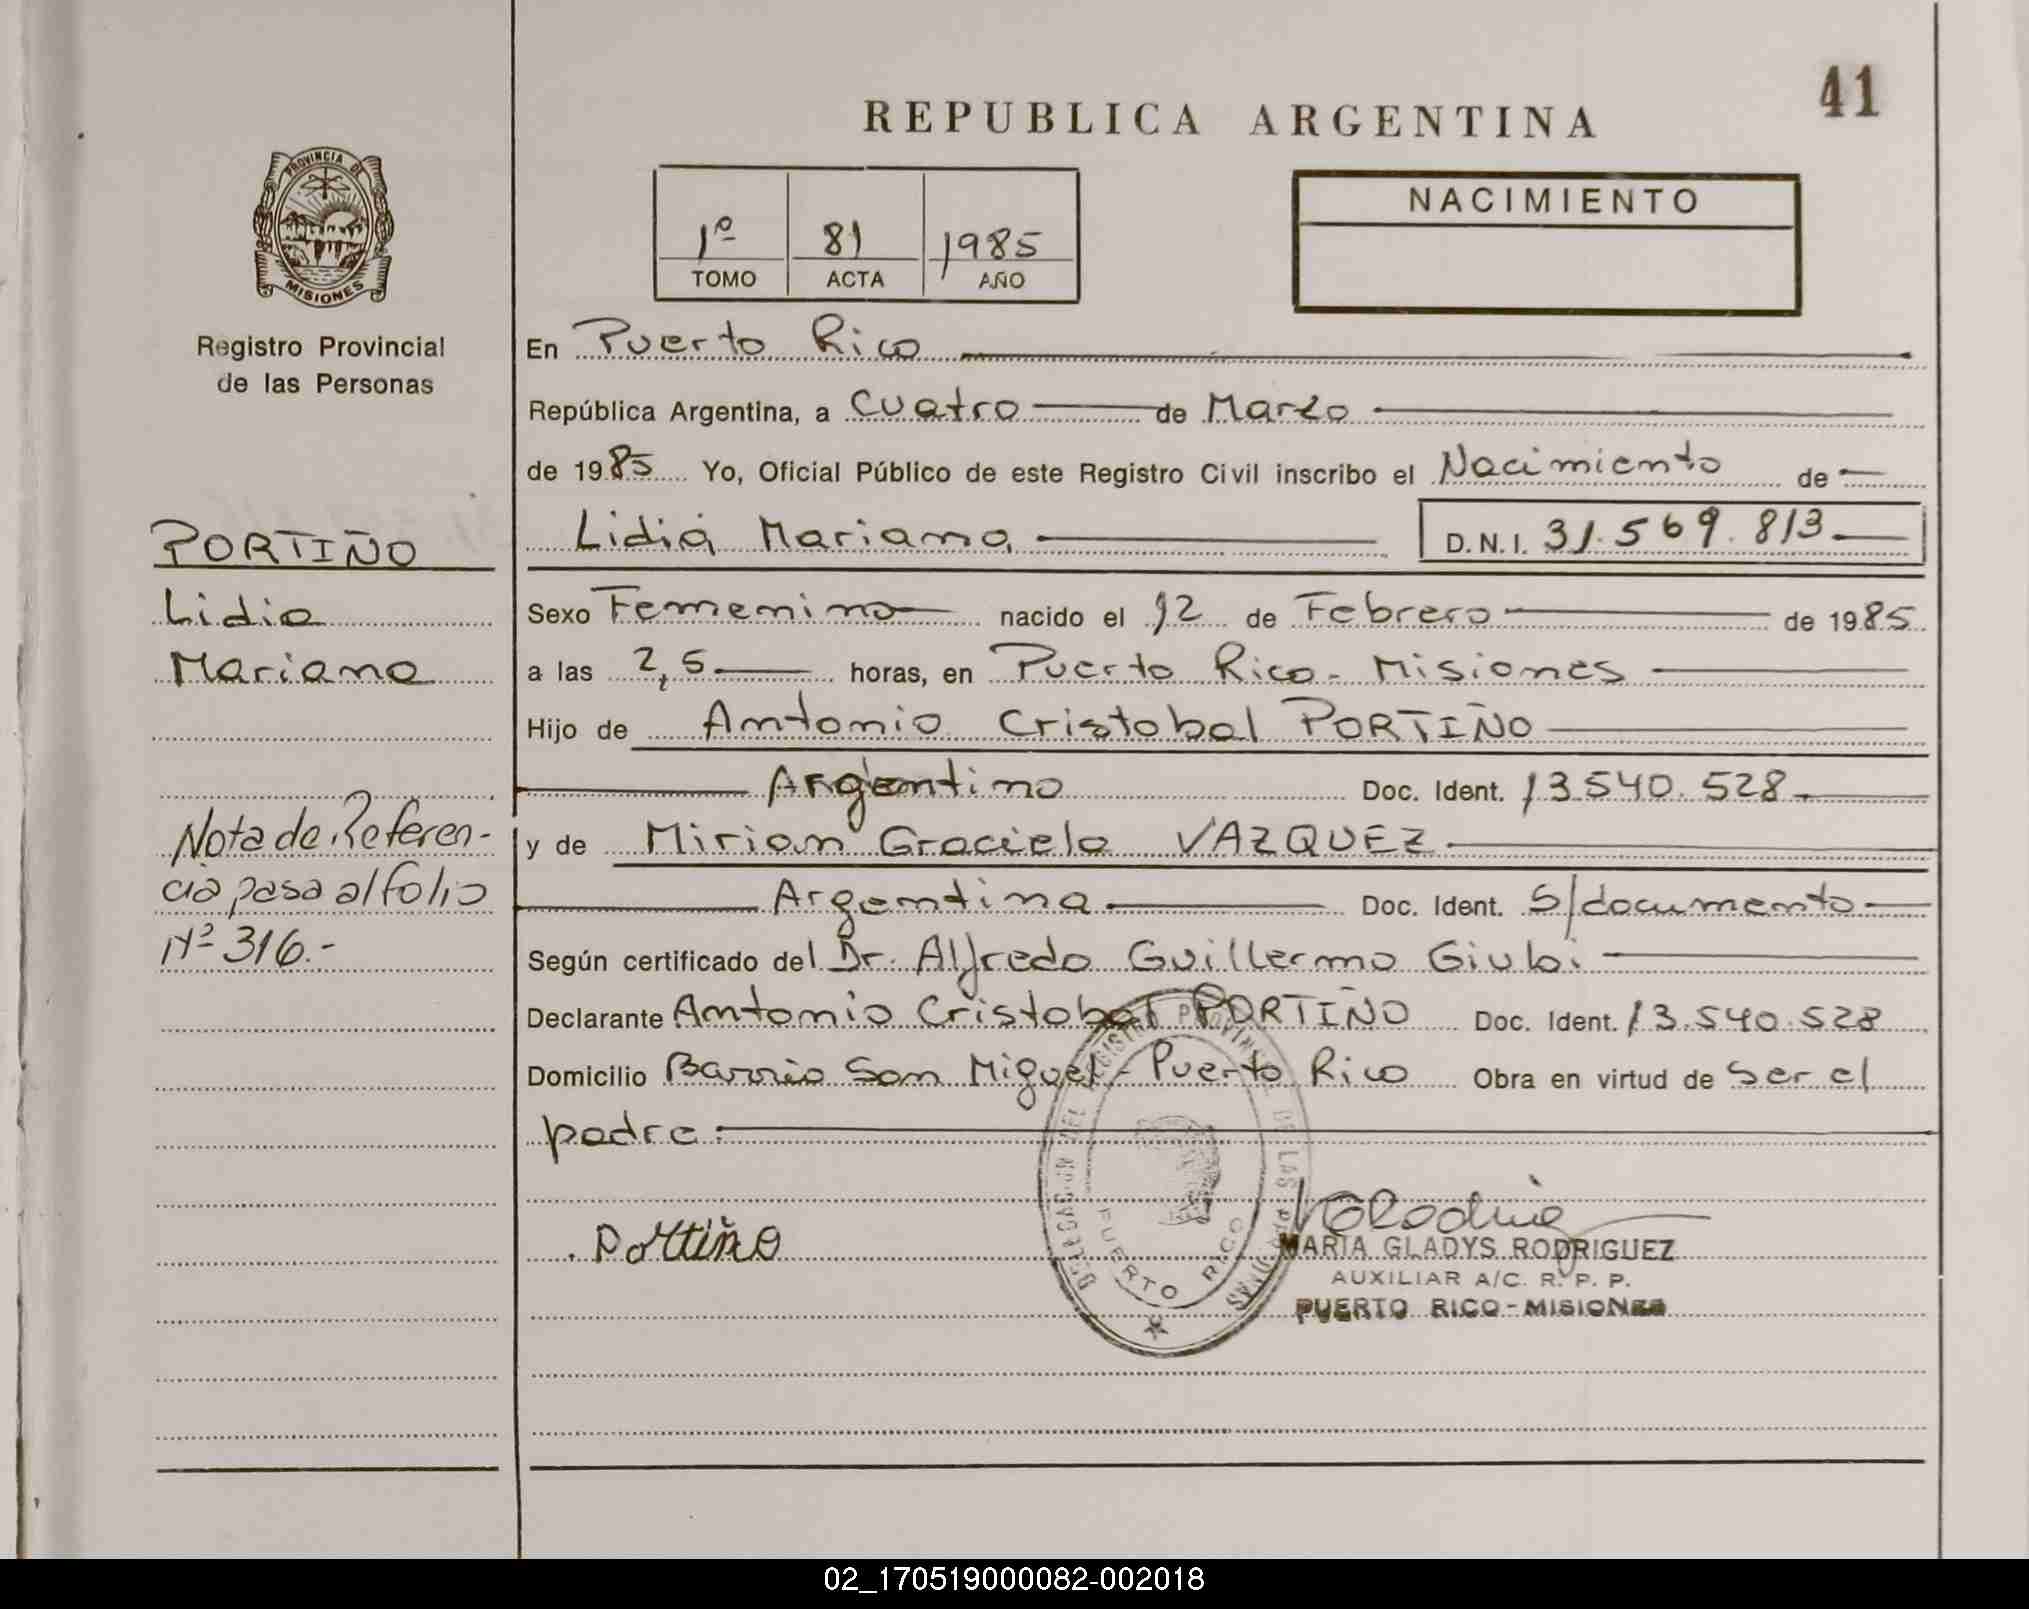 41
REPUBLICA ARGENTINA
PROVINCIA DE
MISIONES
Registro Provincial
de las Personas
1º 81 1985
TOMO ACTA AÑO
NACIMIENTO
En Puerto Rico
República Argentina, a Cuatro de Marzo
de 1985 Yo, Oficial Público de este Registro Civil inscribo el Nacimiento de
Lidia Mariana D.N.I. 31.569.813
PORTIÑO
Lidia
Mariana
Sexo Femenino nacido el 12 de Febrero de 1985
a las 2,5 horas, en Puerto Rico - Misiones
Hijo de Antonio Cristobal PORTIÑO
Argentino Doc. Ident. 13.540.528.
y de Mirian Graciela VAZQUEZ
Argentina Doc. Ident. S/documento
Nota de Referen-
cia pasa al folio
Nº 316.-
Según certificado del Dr. Alfredo Guillermo Giubi
Declarante Antonio Cristobal PORTIÑO Doc. Ident. 13.540.528
Domicilio Barrio San Miguel - Puerto Rico Obra en virtud de Ser el
padre.
Portiño
DELEGACION DEL REGISTRO PROVINCIAL DE LAS PERSONAS
PUERTO RICO
MARIA GLADYS RODRIGUEZ
AUXILIAR A/C. R. P. P.
PUERTO RICO - MISIONES
02_170519000082-002018